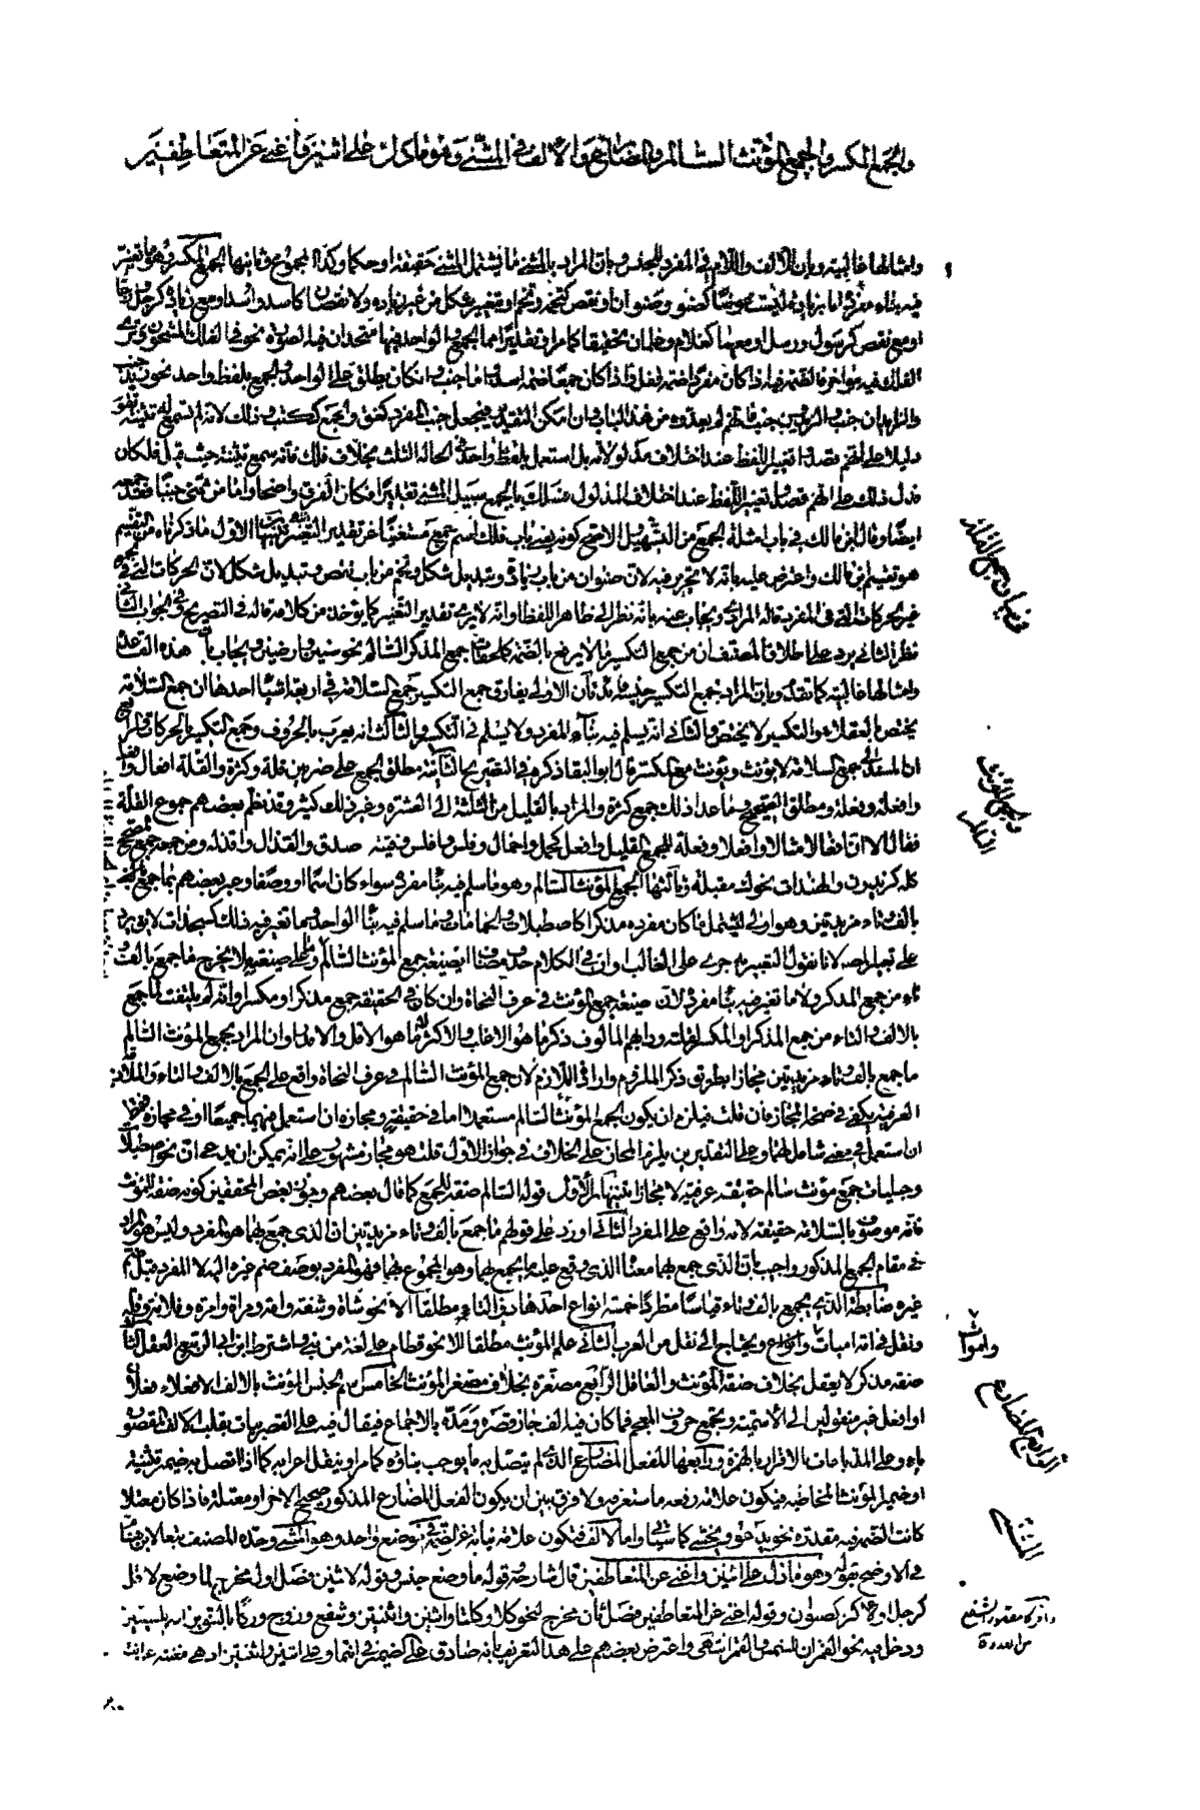 والجمع المكسر والجمع المؤنث السالم والمضارع والألف في المثنى وهو ما دل على اثنين وأغنى عن المتعاطفين
وامثالها غالبية وبان الالف واللام في المفرد للجنس وبان المراد بالمثنى ما يشمل المثنى حقيقة او حكما وكذا المجموع وثانيها الجمع المكسر وهو ما تغير
فيه بناء مفرده اما بزيادة ليست عوضا كصنو وصنوان او نقص كتخمة وتخم او تغيير شكل من غير زيادة ولا نقصان كاسد واسد او مع زيادة كرجل ورجال
او مع نقص كرسول ورسل او معهما كغلام وغلمان تحقيقا كما مر او تقديرا اما الجمع والواحد فيها متحدان في الصورة نحو في الفلك المشحون وترى
الفلك فيه مواخر فالضمة فيه اذا كان مفردا ضمة قفل واذا كان جمعا ضمة اسد واما جنب وان كان يطلق على الواحد والجمع بلفظ واحد نحو زيد جنب
والزيدان جنب والزيدون جنب فانهم لم يعدوه من هذا الباب وان امكن التقدير فيجعل جنب المفرد كعنق والجمع ككتب وذلك لانه لم تسمع له تثنية
دليلا على انهم قصدوا تغيير اللفظ عند اختلاف مدلوله بل استعمل بلفظ واحد في الحالة الثلث بخلاف فلك فانه سمع تثنيته حيث قيل فلكان
فدل ذلك على انهم قصدوا تغيير اللفظ عند اختلاف المدلول فسلك بالجمع سبيل المثنى تقديرا فكان الفرق واضحا واما من ثنى جنبا فقد جمعه
ايضا وقال ابن مالك في باب امثلة الجمع من التسهيل الاصح كونه يعني باب فلك اسم جمع مستغنيا عن تقدير التغيير تنبيهات الاول ما ذكرناه من التقسيم
هو تقسيم ابن مالك واعترض عليه بانه لا تحرير فيه لان صنوان من باب زيادة وتبديل شكل وتخم من باب نقص وتبديل شكل لان الحركات التي في الجمع
غير الحركات التي في المفرد قاله المرادي ويجاب عنه بانه نظر الى ظاهر اللفظ او انه لا يرى تقدير التغيير كما يؤخذ من كلامه قاله في التصريح وفي الجواب الثاني
نظر الثاني يرد على اطلاق المصنف ان من جمع التكسير ما لا يرفع بالضمة كملحقات جمع المذكر السالم نحو سنين وارضين ويجاب بان هذه القاعدة
وامثالها غالبية كما تقدم وبان المراد بجمع التكسير جنسه فائدتان الاولى يفارق جمع التكسير جمع السلامة في اربعة اشيا احدها ان جمع السلامة
يختص بالعقلاء والتكسير لا يختص والثاني انه يسلم فيه بناء المفرد ولا يسلم في التكسير والثالث انه يعرب بالحروف وجمع التكسير بالحركات والرابع
ان المسند الى جمع السلامة لا يؤنث ويؤنث مع المكسر قال ابو البقا ذكره في التصريح الثانية مطلق الجمع على ضربين قلة وكثرة والقلة افعال وافعل
وافعلة وفعلة ومطلق الصحيح وما عدا ذلك جمع كثرة والمراد بالقليل من الثلثة الى العشرة وغير ذلك كثير وقد نظم بعضهم جموع القلة
فقال الا ان افعالا مثالا وافعلا وفعلة للجمع القليل وافعل كحمل واحمال وفلس وافلس وفتية صدق والقذال واقذله ومن جمعه جمع صحيح
كله كزيدون والهندات نحوك مقبله وثالثها الجمع المؤنث السالم وهو ما سلم فيه بنا مفرده سواء كان اسما او وصفا وعبر بعضهم بما جمع
بالف وتاء مزيدتين وهو اولى ليشمل ما كان مفرده مذكرا كاصطبلات وحمامات وما سلم فيه بنا الواحد وما تغير فيه ذلك كسجدات لا يرد
على تعبيره لانا نقول التعبير به جرى على الغالب او ان في الكلام حذف مضاف اي صيغة جمع المؤنث السالم وما على صيغته ولا يخرج ما جمع بالف
وتاء من جمع المذكر ولا ما تغير فيه بنا مفرده لان صيغة جمع المؤنث في عرف النحاة وان كان في الحقيقة جمع مذكر او مكسر او انه لم يلتفت للجمع
بالالف والتاء من جمع المذكر او المكسر لقلته ودابهم المالوف ذكر ما هو الاغلب والاكثر لا ما هو الاقل والاقل وان المراد بجمع المؤنث السالم
ما جمع بالف وتاء مزيدتين مجازا بطريق ذكر الملزوم وارادة اللازم لان جمع المؤنث السالم في عرف النحاة واقع على الجمع بالالف والتاء
العرفية يكفي في صحة المجاز فان قلت فيلزم ان يكون الجمع المؤنث السالم مستعملا اما في حقيقته ومجازه ان استعمل فيهما جميعا او في مجازه فقط
ان استعمل في معنى شامل لهما وعلى التقديرين يلزم المجاز على الخلاف في جواز الاول قلت هو مجاز مشهور على انه يمكن ان يدعى ان نحو اصطبلات
وحبليات جمع مؤنث سالم حقيقة عرفية لا مجازا تنبيهان الاول قوله السالم صفة للجمع كما قال بعضهم وجوز بعض المحققين كونه صفة للمؤنث
فانه موصوف بالسلامة حقيقة لانه واقع على المفرد الثاني اورد على قولهم ما جمع بالف وتاء مزيدتين ان الذي جمع بهما هو المفرد وليس هو المراد
في مقام الجمع المذكور واجيب بان الذي جمع بهما معناه الذي وقع عليه الجمع بهما وهو المجموع بهما فهو المفرد بوصف ضم غيره اليه لا المفرد قبل ضم
غيره وضابطة الذي يجمع بالف وتاء قياسا مطردا خمسة انواع احدها ذو التاء مطلقا الا نحو شاة وشفة وامة ومراة وامرة وفلانة وقلة
ونقل في امة اميات واموات ويحتاج الى نقل من العرب الثاني علم المؤنث مطلقا الا نحو قطام على لغة من بنى واشترط ابن ابي الربيع العقل الثالث
صفة مذكر لا يعقل بخلاف صفة المؤنث والعاقل الرابع مصغره بخلاف مصغر المؤنث الخامس اسم الجنس المؤنث بالالف الا فعلاء فعلان
او افعل غير منقولين الى الاسمية وتجمع حروف المعجم فما كان فيه الف جاز قصره ومده بالاجماع فيقال فيه على القصر بيات بقلب الالف المقصورة
ياء وعلى المد باءات بالاقرار بالهمزة ورابعها للفعل المضارع الذي لم يتصل به ما يوجب بناؤه كما مر او ينقل اعرابه كما اذا اتصل به ضمير تثنية
او ضمير المؤنثة المخاطبة فيكون علامة رفعه ما ستعرفه ولا فرق بين ان يكون الفعل المضارع المذكور صحيح الاخر او معتله فاذا كان معتلا
كانت الضمة فيه مقدرة نحو يدعو ويخشى كما سياتي واما الالف فتكون علامة نيابة عن الضمة في موضع واحد وهو المثنى وحده المصنف تبعا لابن هشام
في الاوضح بقوله وهو ما دل على اثنين واغنى عن المتعاطفين قال شارحه قوله ما وضع جنس وقوله لاثنين فصل اول مخرج لما وضع لاقل
كرجل او لاكثر كصنوان وقوله اغنى عن المتعاطفين فصل ثان مخرج لنحو كلا وكلتا واثنين واثنتين وشفع وزوج وزكا بالتنوين
ودخل فيه نحو القمران للشمس والقمر انتهى واعترض بعضهم على هذا التعريف بانه صادق على الضمير في انتما وعلى اثنين واثنتين اذ هي مغنية عن انت
في بيان جمع القلة
والجمع المؤنث
السالم
واموات
الرابع المضارع
المثنى